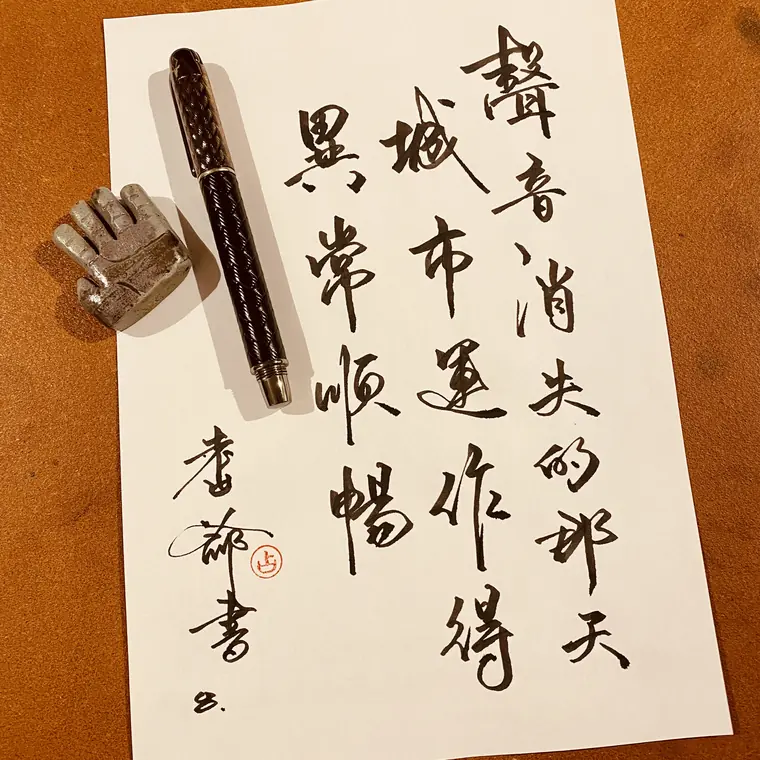 聲音消失的那天
城市運作得
異常順暢
書